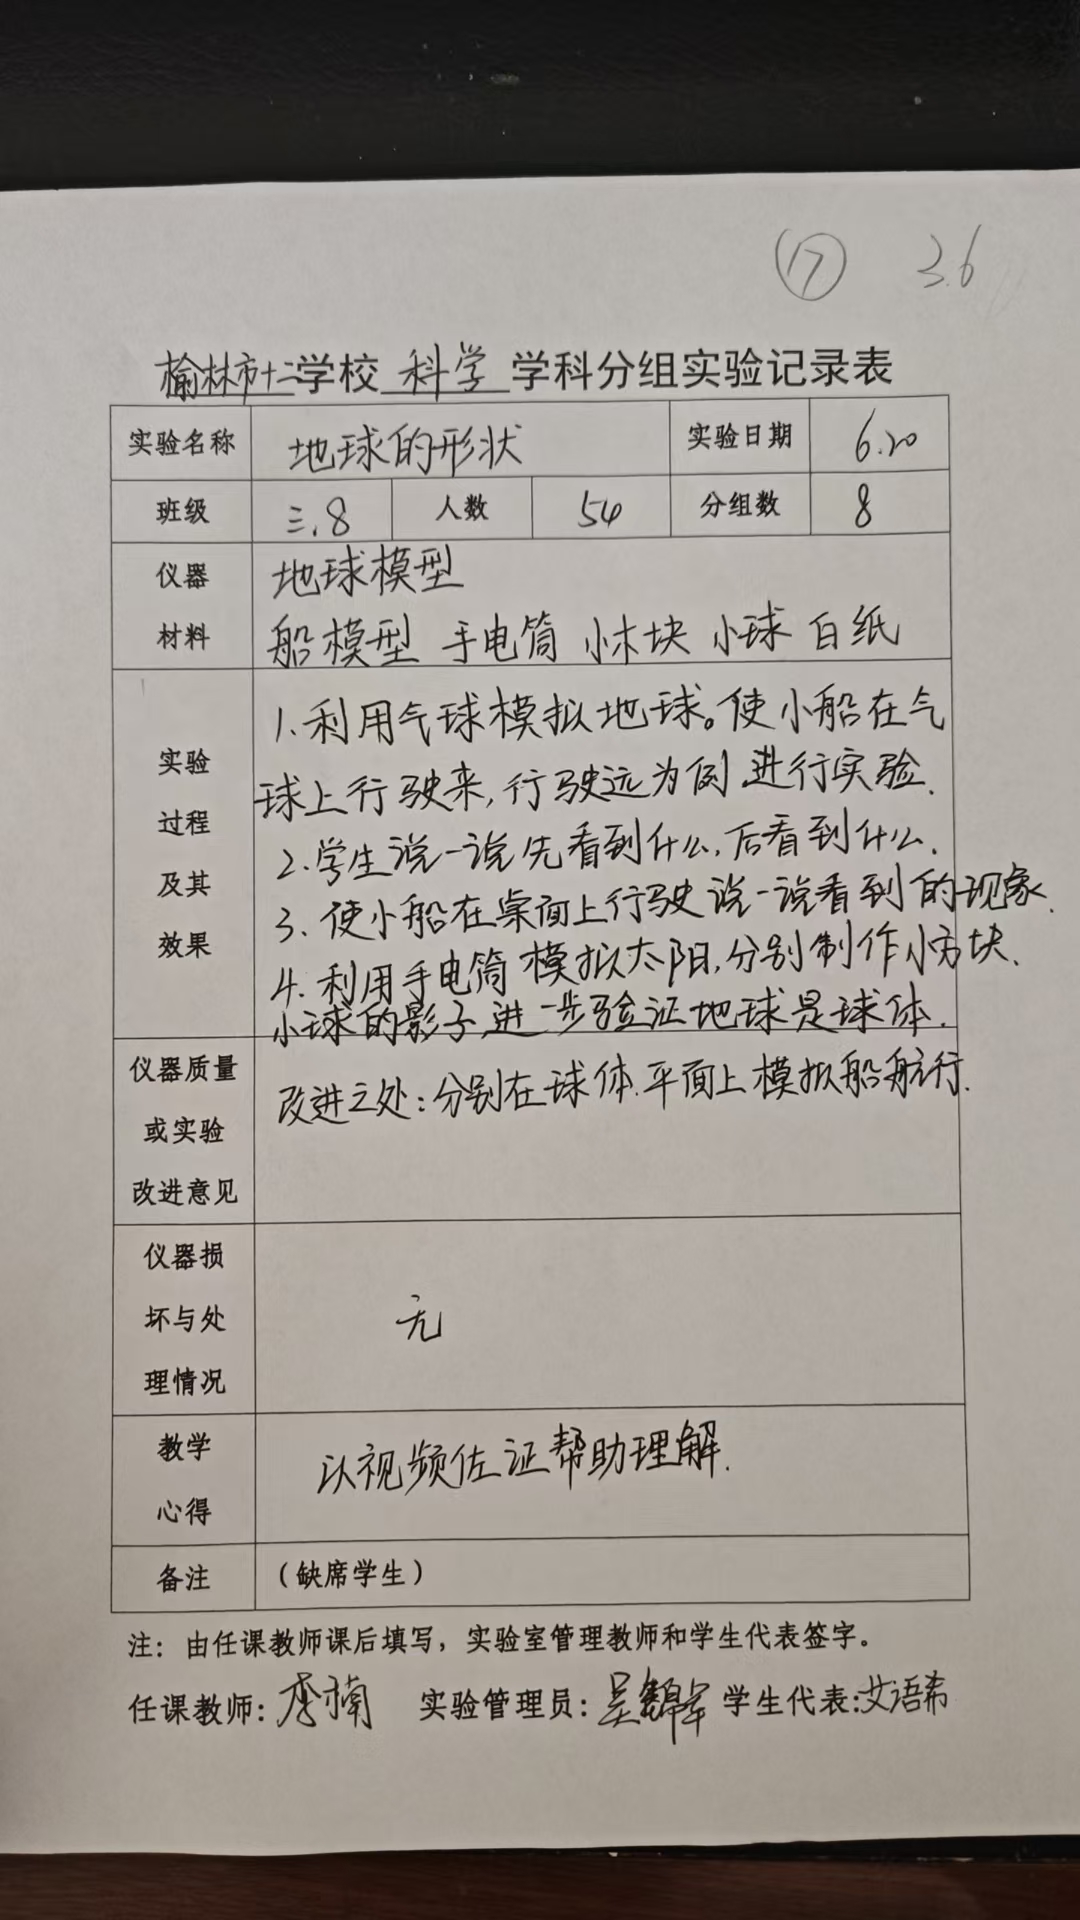 ⑰ 3.6
榆林市十二学校 科学 学科分组实验记录表
实验名称 地球的形状 实验日期 6.20
班级 三.8 人数 54 分组数 8
仪器 地球模型
材料 船模型 手电筒 小木块 小球 白纸
1.利用气球模拟地球。使小船在气
实验
球上行驶来,行驶远为例.进行实验.
过程
2.学生说一说先看到什么,后看到什么.
及其
3.使小船在桌面上行驶说一说看到的现象.
效果
4.利用手电筒模拟太阳,分别制作小方块.
小球的影子进一步验证地球是球体.
仪器质量
改进之处:分别在球体.平面上模拟船航行.
或实验
改进意见
仪器损
坏与处 无
理情况
教学
以视频佐证帮助理解.
心得
备注 (缺席学生)
注:由任课教师课后填写,实验室管理教师和学生代表签字。
任课教师:李楠 实验管理员:吴锦军 学生代表:艾语希